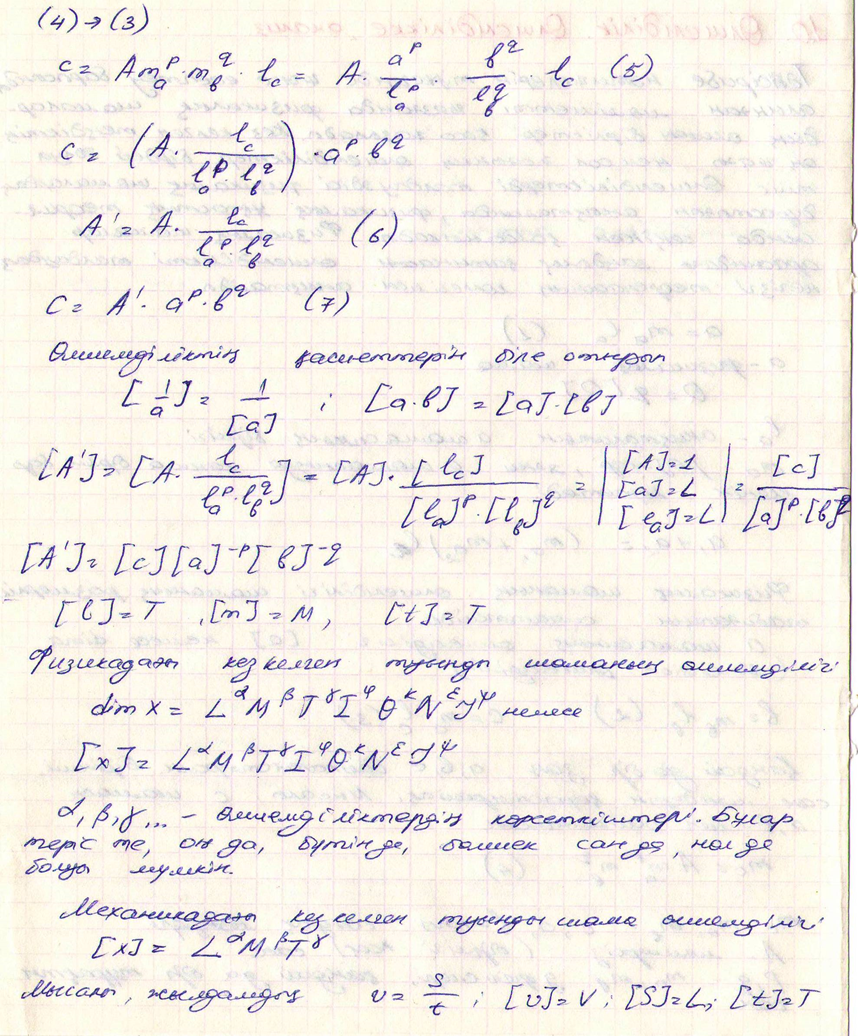 (4) → (3)
c = A m_a^p · m_b^q · l_c = A · a^p / l_a^p · b^q / l_b^q · l_c (5)
c = (A · l_c / (l_a^p l_b^q)) · a^p b^q
A' = A · l_c / (l_a^p l_b^q) (6)
c = A' · a^p · b^q (7)
Өлшемділіктің қасиеттерін біле отырып
[1/a] = 1/[a] ; [a·b] = [a]·[b]
[A'] = [A · l_c / (l_a^p · l_b^q)] = [A] · [l_c] / ([l_a]^p · [l_b]^q) = | [A]=1 [a]=L [l_a]=L | = [c] / ([a]^p · [b]^q)
[A'] = [c][a]^-p [b]^-q
[b]=T , [m]=M, [t]=T
Физикадағы кез келген туынды шаманың өлшемділігі
dim x = L^α M^β T^γ I^φ θ^κ N^ε J^ψ немесе
[x] = L^α M^β T^γ I^φ θ^κ N^ε J^ψ
α, β, γ, ... - өлшемділіктердің көрсеткіштері. Бұлар
теріс те, оң да, бүтін де, бөлшек сан да, нөл де
болуы мүмкін.
Механикадағы кез келген туынды шама өлшемділігі
[x] = L^α M^β T^γ
Мысалы, жылдамдық v = S/t ; [v]=V ; [S]=L; [t]=T